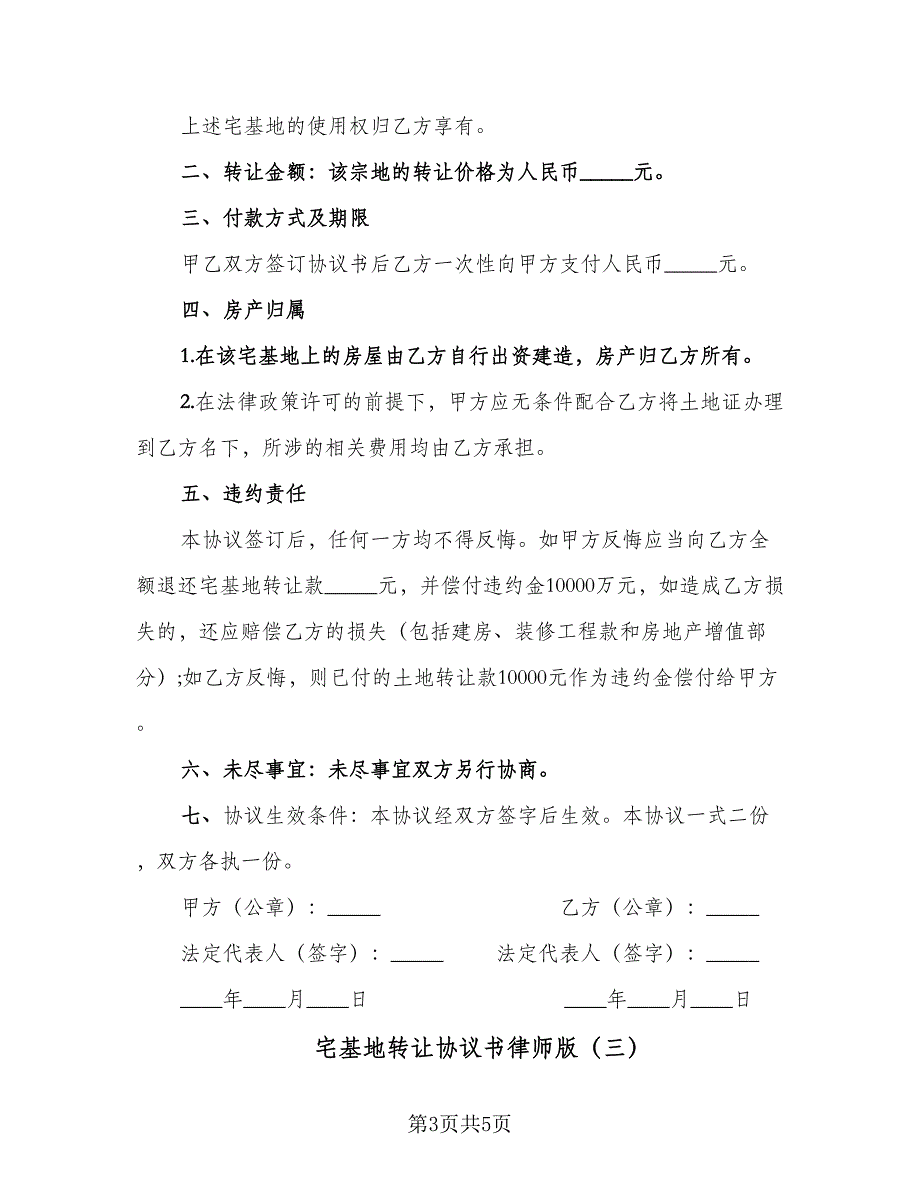 上述宅基地的使用权归乙方享有。
二、转让金额：该宗地的转让价格为人民币_____元。
三、付款方式及期限
甲乙双方签订协议书后乙方一次性向甲方支付人民币_____元。
四、房产归属
1.在该宅基地上的房屋由乙方自行出资建造，房产归乙方所有。
2.在法律政策许可的前提下，甲方应无条件配合乙方将土地证办理
到乙方名下，所涉的相关费用均由乙方承担。
五、违约责任
本协议签订后，任何一方均不得反悔。如甲方反悔应当向乙方全
额退还宅基地转让款_____元，并偿付违约金10000万元，如造成乙方损
失的，还应赔偿乙方的损失（包括建房、装修工程款和房地产增值部
分）;如乙方反悔，则已付的土地转让款10000元作为违约金偿付给甲方
。
六、未尽事宜：未尽事宜双方另行协商。
七、协议生效条件：本协议经双方签字后生效。本协议一式二份
，双方各执一份。
甲方（公章）：_____ 乙方（公章）：_____
法定代表人（签字）：_____ 法定代表人（签字）：_____
____年____月____日 ____年____月____日
宅基地转让协议书律师版（三）
第3页共5页